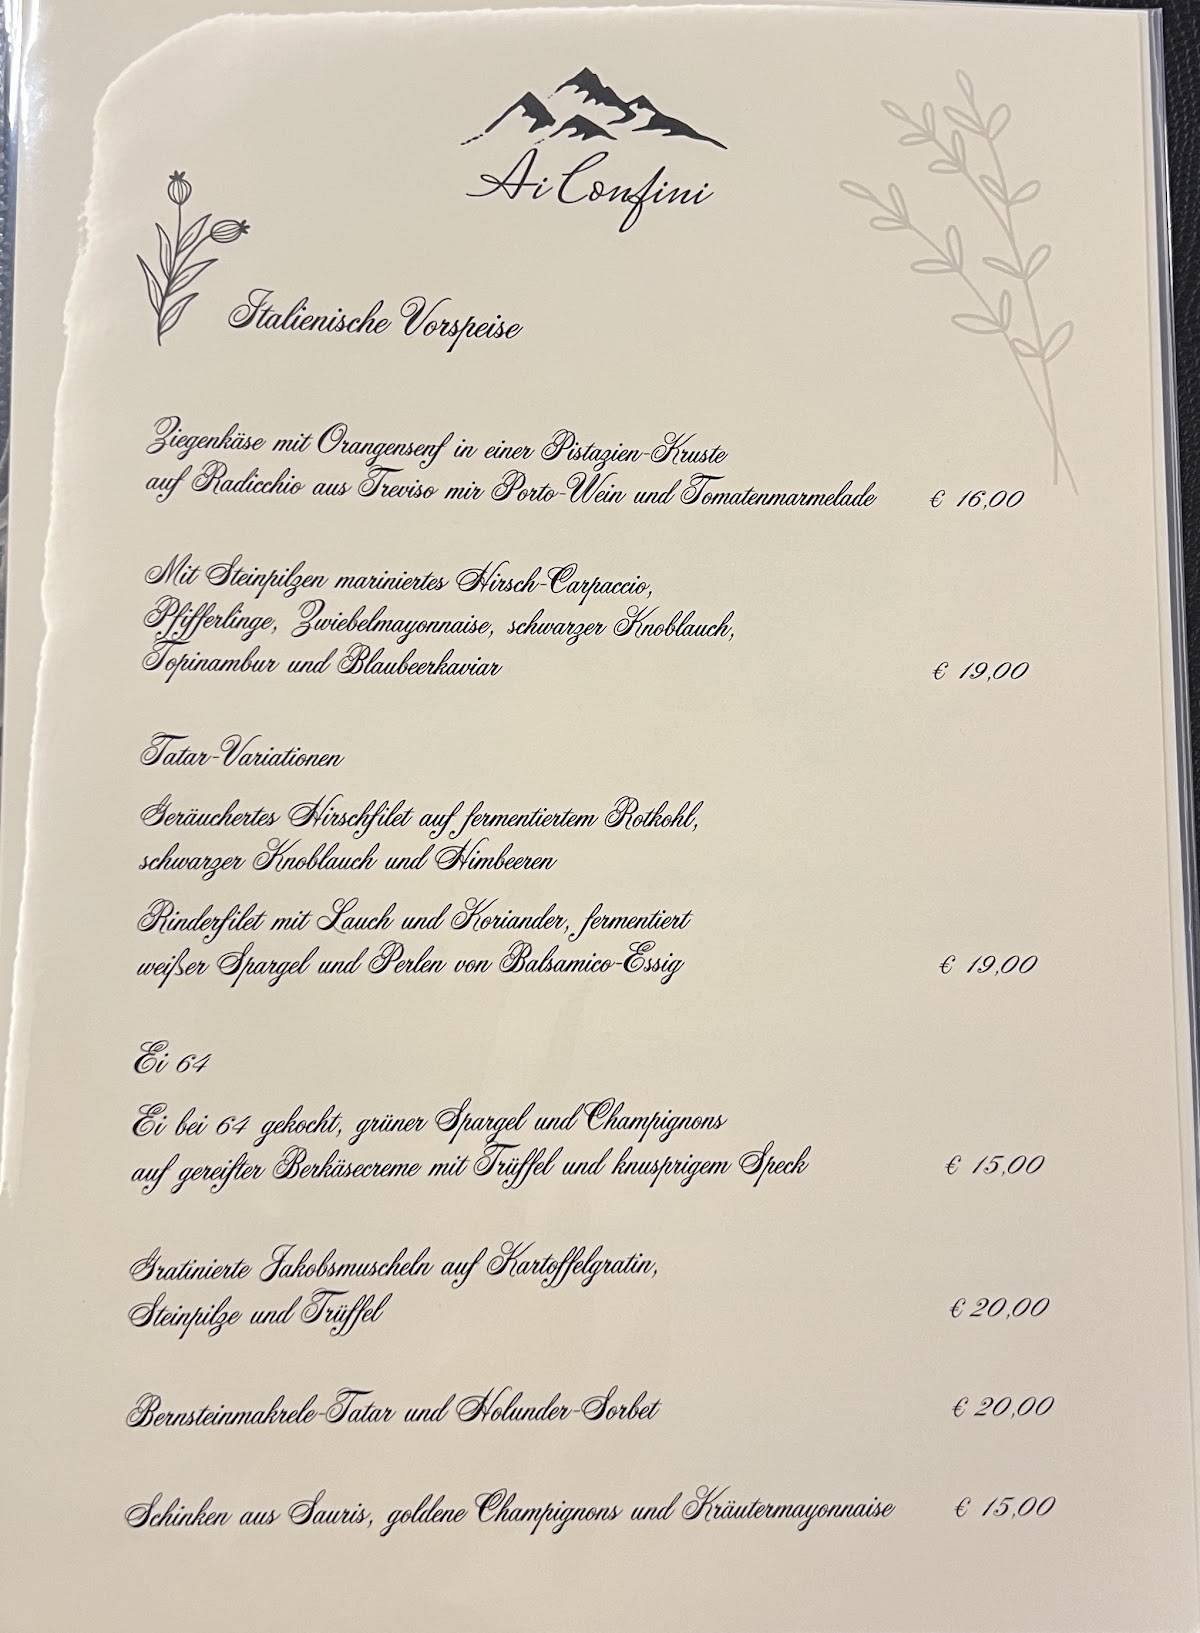 Ai Confini
Italienische Vorspeise
Ziegenkäse mit Orangensenf in einer Pistazien-Kruste
auf Radicchio aus Treviso mir Porto-Wein und Tomatenmarmelade € 16,00
Mit Steinpilzen mariniertes Hirsch-Carpaccio,
Pfifferlinge, Zwiebelmayonnaise, schwarzer Knoblauch,
Topinambur und Blaubeerkaviar € 19,00
Tatar-Variationen
Geräuchertes Hirschfilet auf fermentiertem Rotkohl,
schwarzer Knoblauch und Himbeeren
Rinderfilet mit Lauch und Koriander, fermentiert
weißer Spargel und Perlen von Balsamico-Essig € 19,00
Ei 64
Ei bei 64 gekocht, grüner Spargel und Champignons
auf gereifter Berkäsecreme mit Trüffel und knusprigem Speck € 15,00
Gratinierte Jakobsmuscheln auf Kartoffelgratin,
Steinpilze und Trüffel € 20,00
Bernsteinmakrele-Tatar und Holunder-Sorbet € 20,00
Schinken aus Sauris, goldene Champignons und Kräutermayonnaise € 15,00